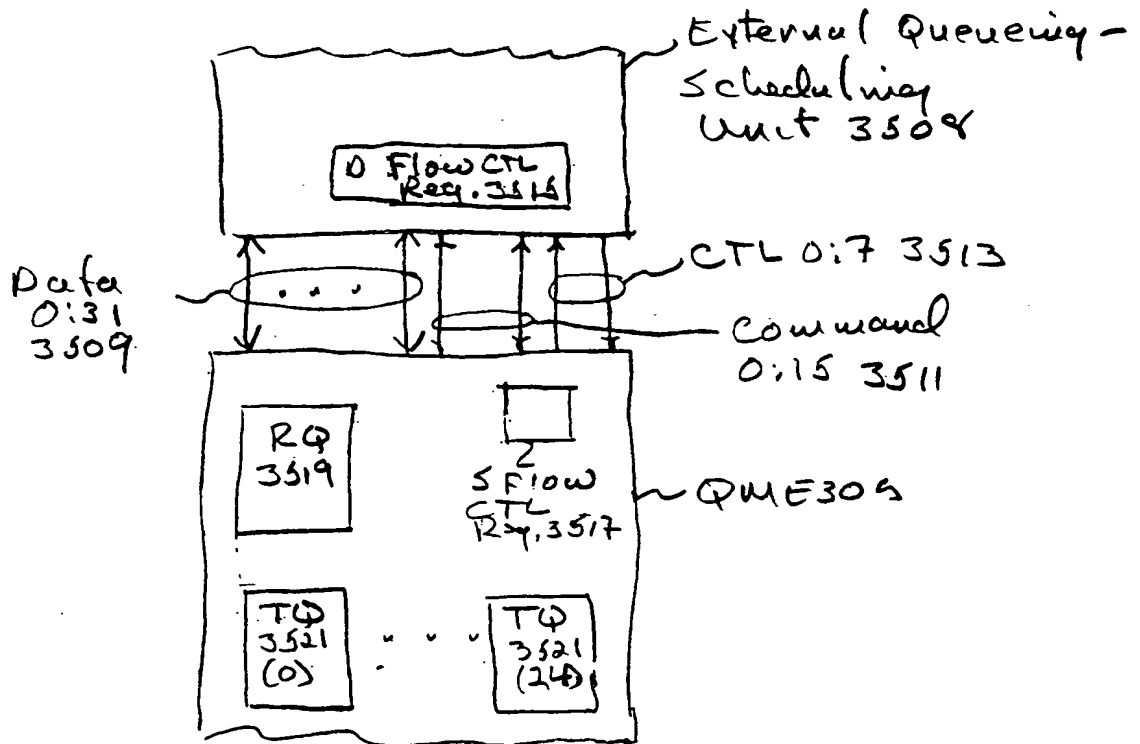 External Queueing-
Scheduling
Unit 3508
D Flow CTL
Reg. 3515
CTL 0:7 3513
Data
0:31
3509
Command
0:15 3511
RQ
3519
S Flow
CTL
Reg. 3517
QME305
TQ
3521
(0)
. . .
TQ
3521
(24)